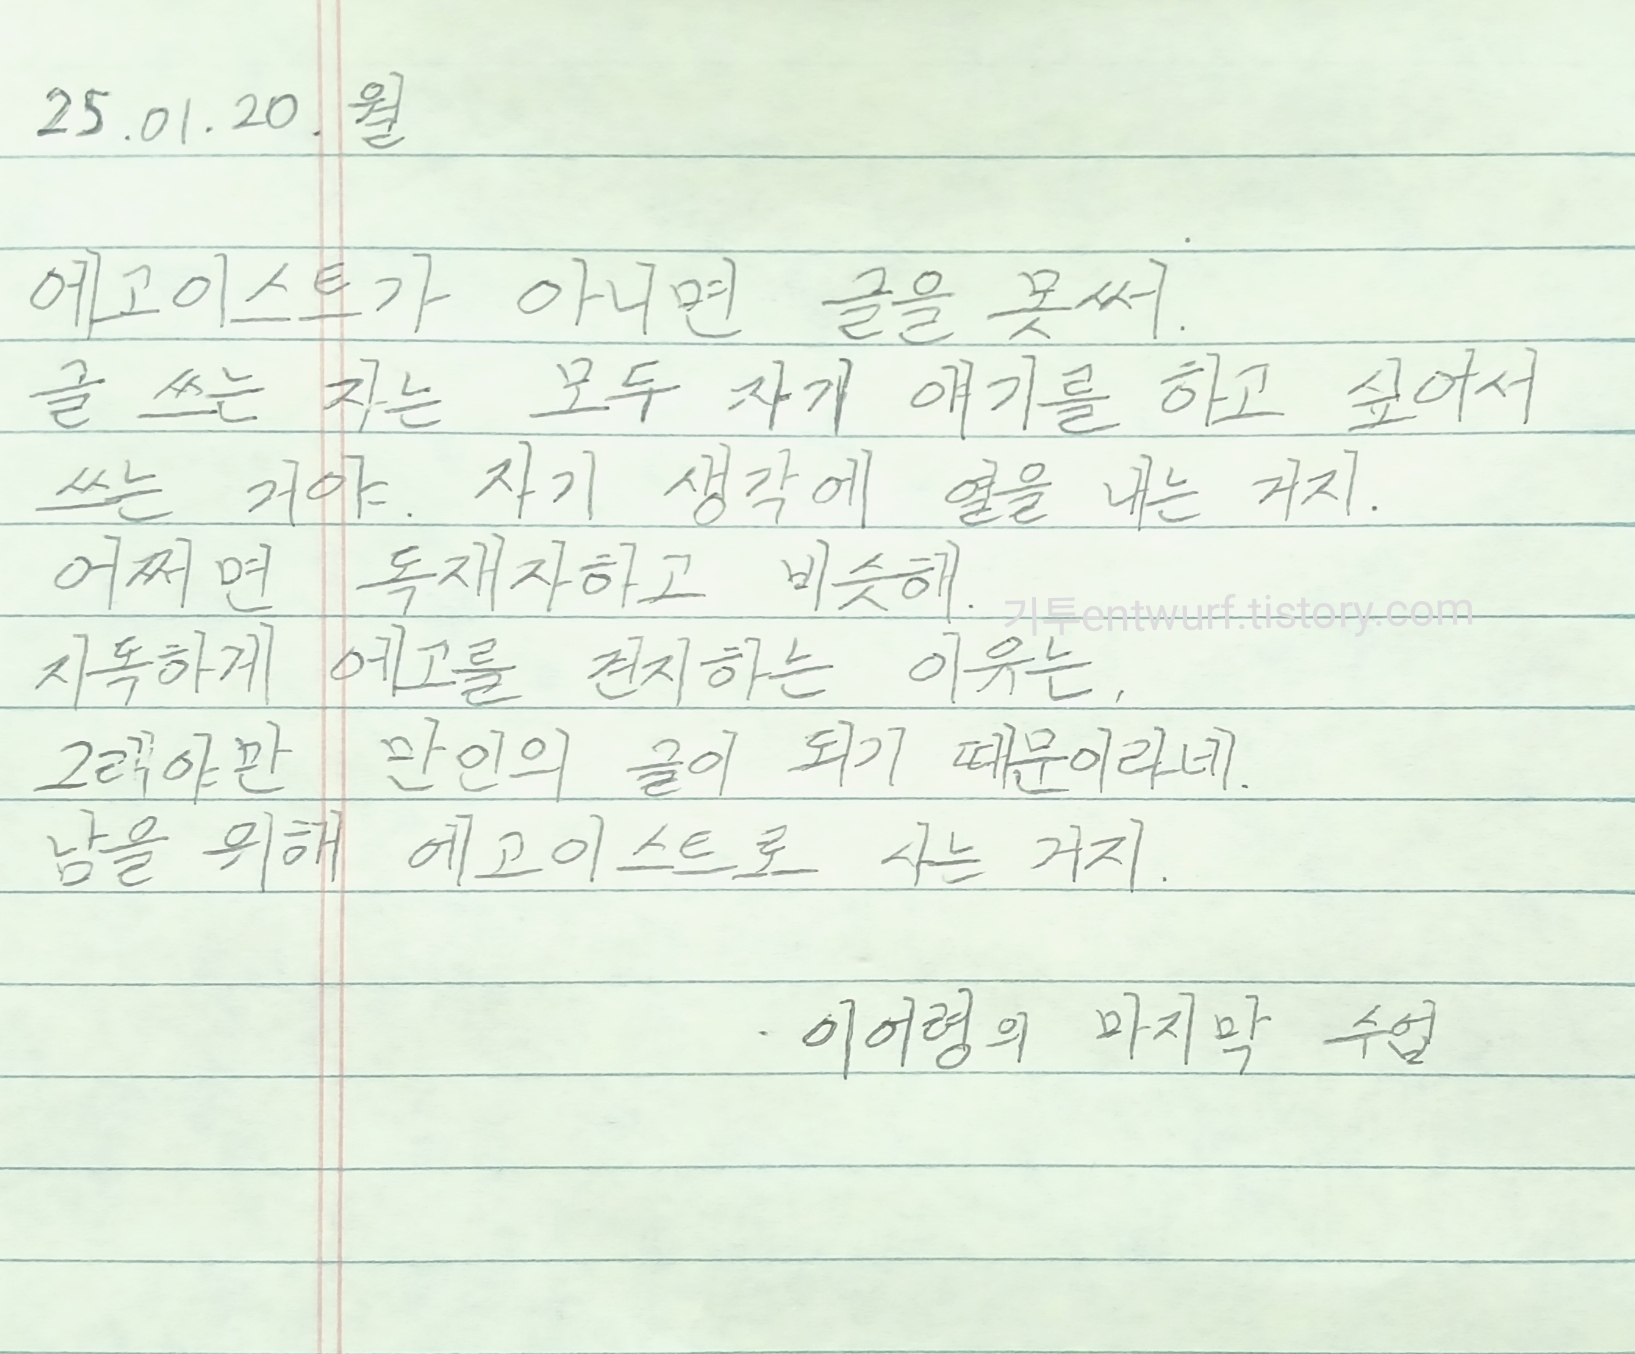 25.01.20. 월
에고이스트가 아니면 글을 못써.
글 쓰는 자는 모두 자기 얘기를 하고 싶어서
쓰는 거야. 자기 생각에 열을 내는 거지.
어쩌면 독재자하고 비슷해.
기투entwurf.tistory.com
지독하게 에고를 견지하는 이유는,
그래야만 만인의 글이 되기 때문이라네.
남을 위해 에고이스트로 사는 거지.
· 이어령의 마지막 수업